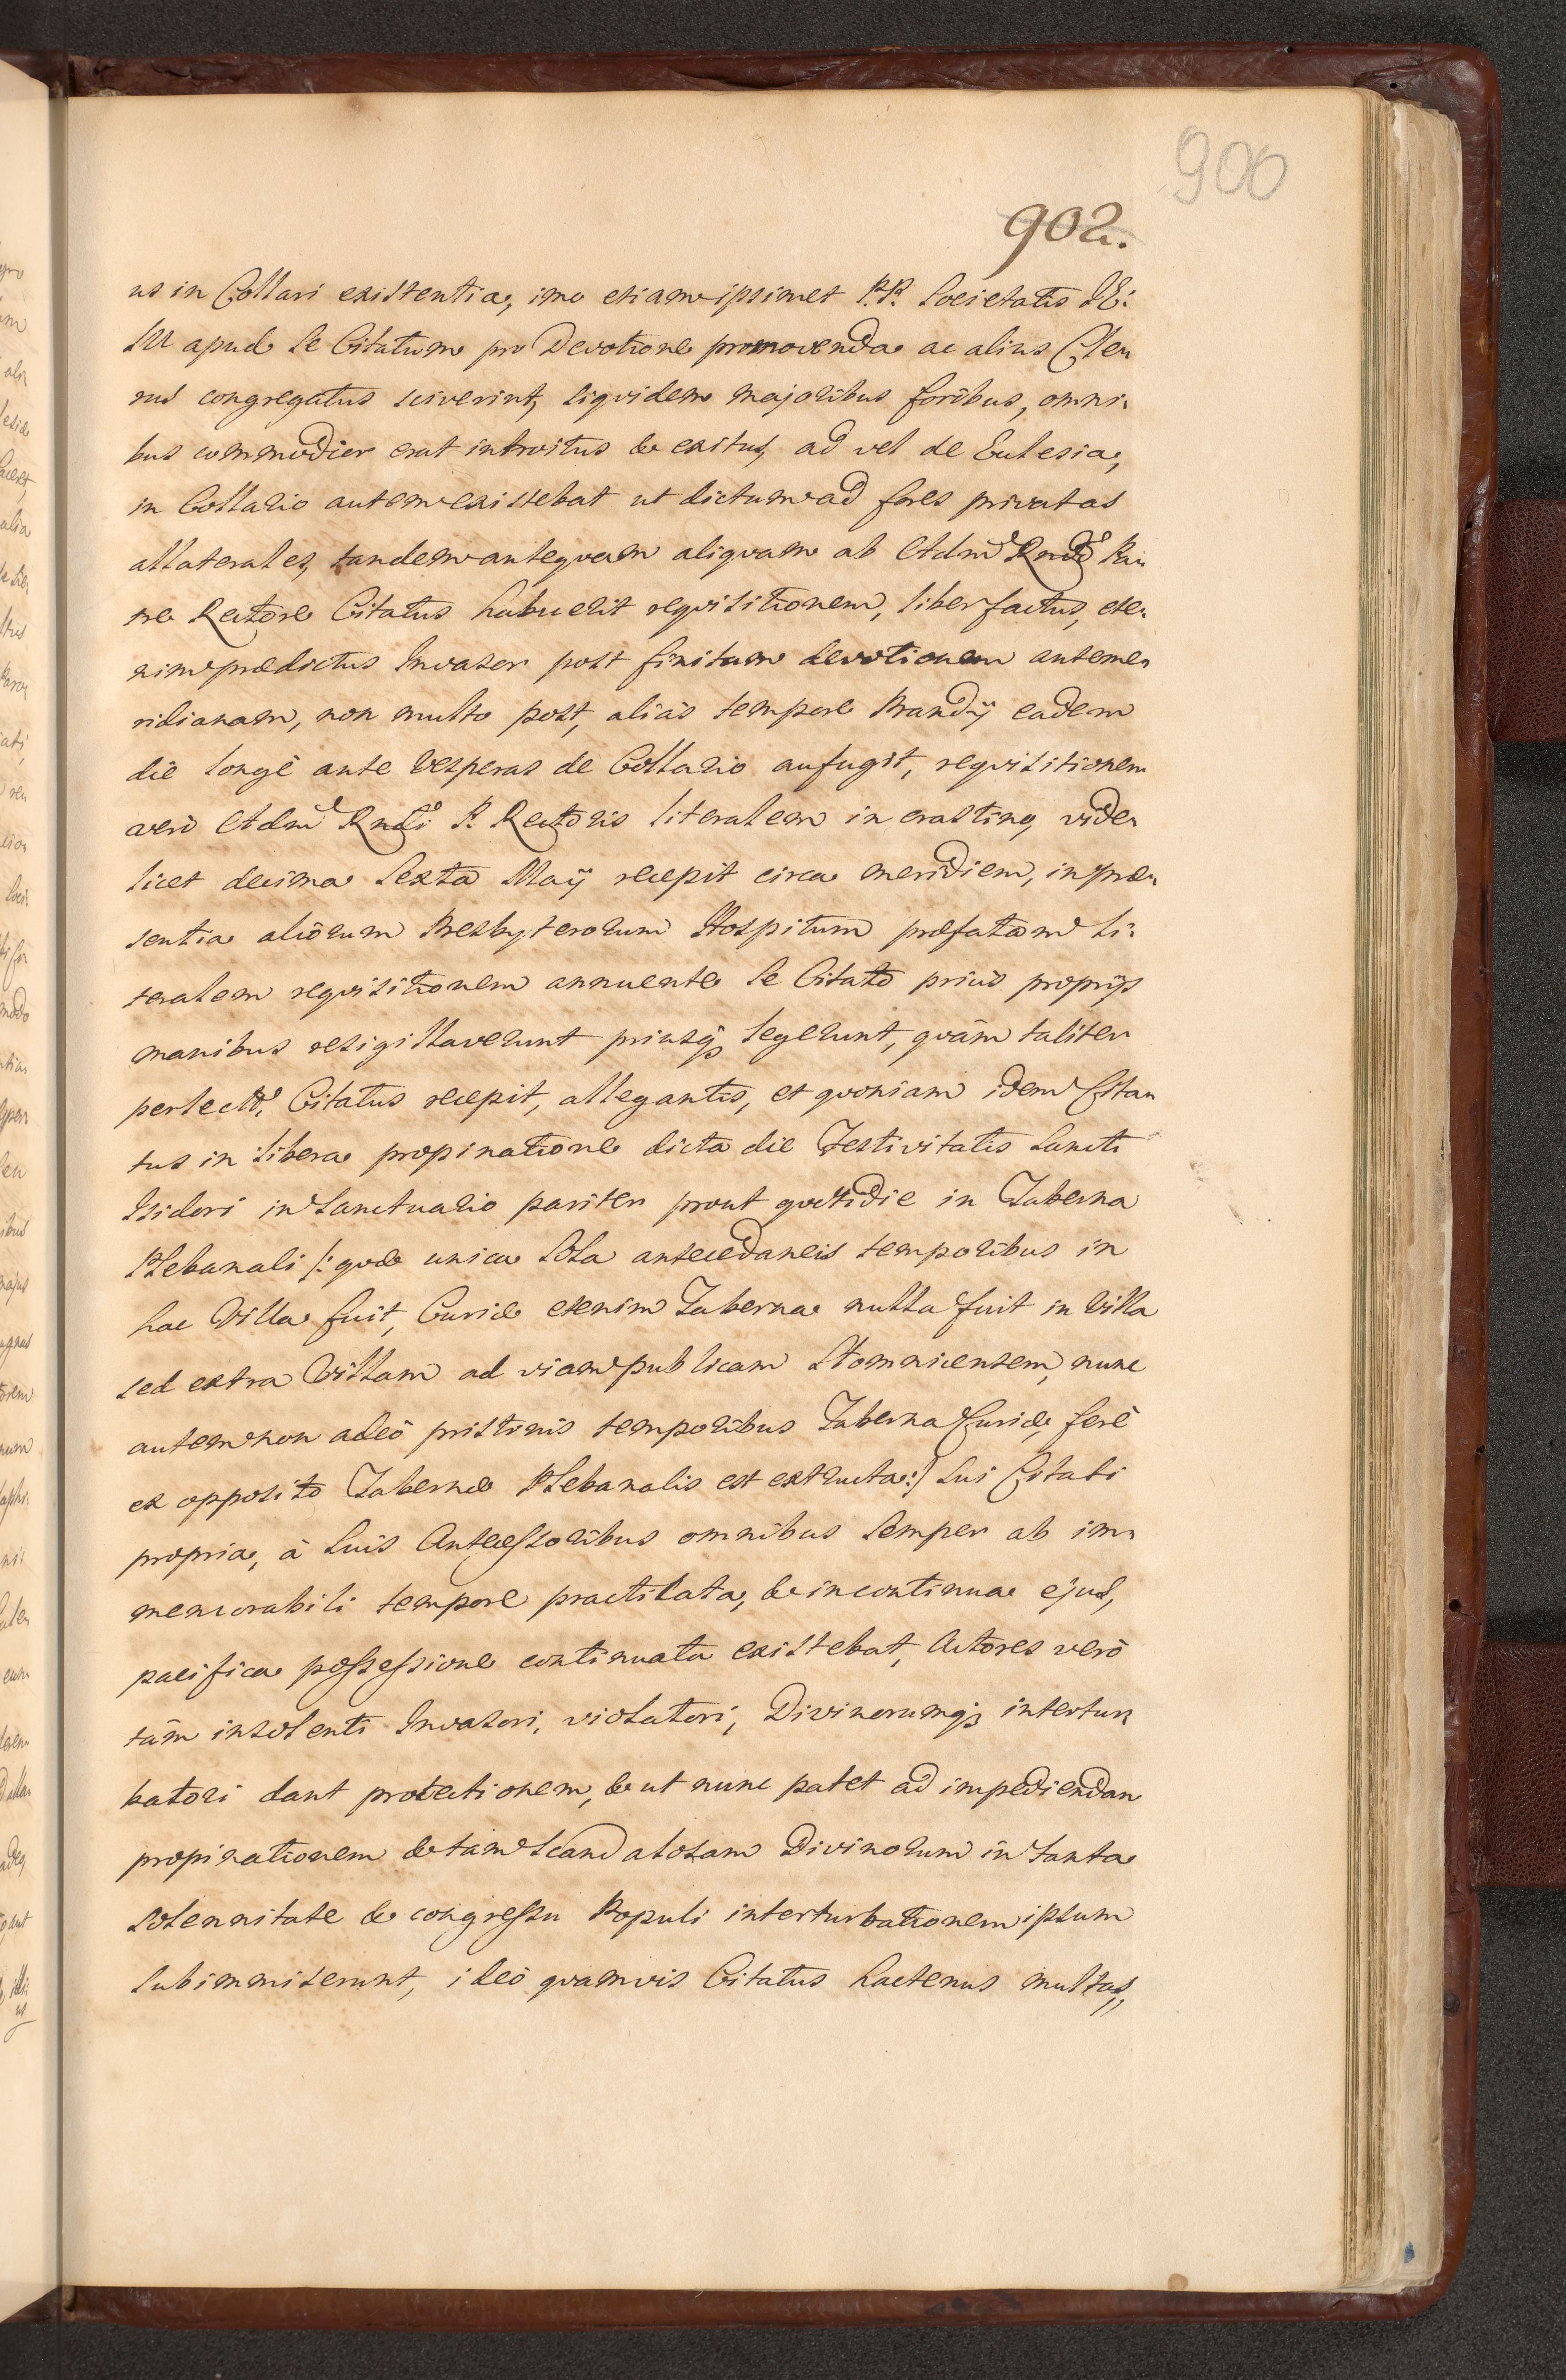 900
902.
us in Collari existentia, imo etiam ipsimet P.P. Societatis JE:
SU apud se Citatum pro Devotione promovenda ac alius Cle„
rus congregatus sciverint, siqvidem majoribus foribus, omni„
bus commodior erat introitus & exitus, ad vel de Eclesia,
in Collario autem existebat ut dictum ad fores privatas
allaterales, tandem anteqvam aliqvam ab Adm Rndo Pa„
tre Rectore Citatus habuerit reqvisitionem, liber factus, ete„
nim prædictus Invasor post finitam devotionem anteme„
ridianam, non multo post, aliàs tempore Prandÿ eadem
die longè ante Vesperas de Collario aufugit, reqvisitionem
verò Adm Rndi P. Rectoris literalem in crastino, vide„
licet decima Sexta Maÿ recepit circa meridiem, in præ„
sentia aliorum Presbyterorum Hospitum præfatam li:
teralem reqvisitionem annuente se Citato priùs proprijs
manibus resigillaverunt priusq; legerunt, qvàm taliter
perlectã Citatus recepit, allegantis, et qvoniam idem Cita„
tus in libera propinatione dicta die Festivitatis Sancti
Isidori in Sanctuario pariter prout qvotidie in Taberna
Plebanali /: qvæ unica sola antecedaneis temporibus in
hac Villa fuit, Curiæ etenim Taberna nulla fuit in Villa
sed extra Villam ad viam publicam Stomnicensem, nunc
autem non adeò pristinis temporibus Taberna Curiæ, ferè
ex opposito Tabernæ Plebanalis est extructa :/ sui Citati
propria, à suis Antecessoribus omnibus semper ab im„
memorabili tempore practicata, & in continua ejus,
pacifica possessione continuata existebat, Actores verò
tàm insolenti Invasori, violatori, Divinorumq; intertur„
batori dant protectionem, & ut nunc patet ad impediendam
propinationem & tam scandalosam Divinorum in tanta
solennitate & congressu Populi interturbationem ipsum
subimmiserunt, ideò qvamvis Citatus hactenus multas„